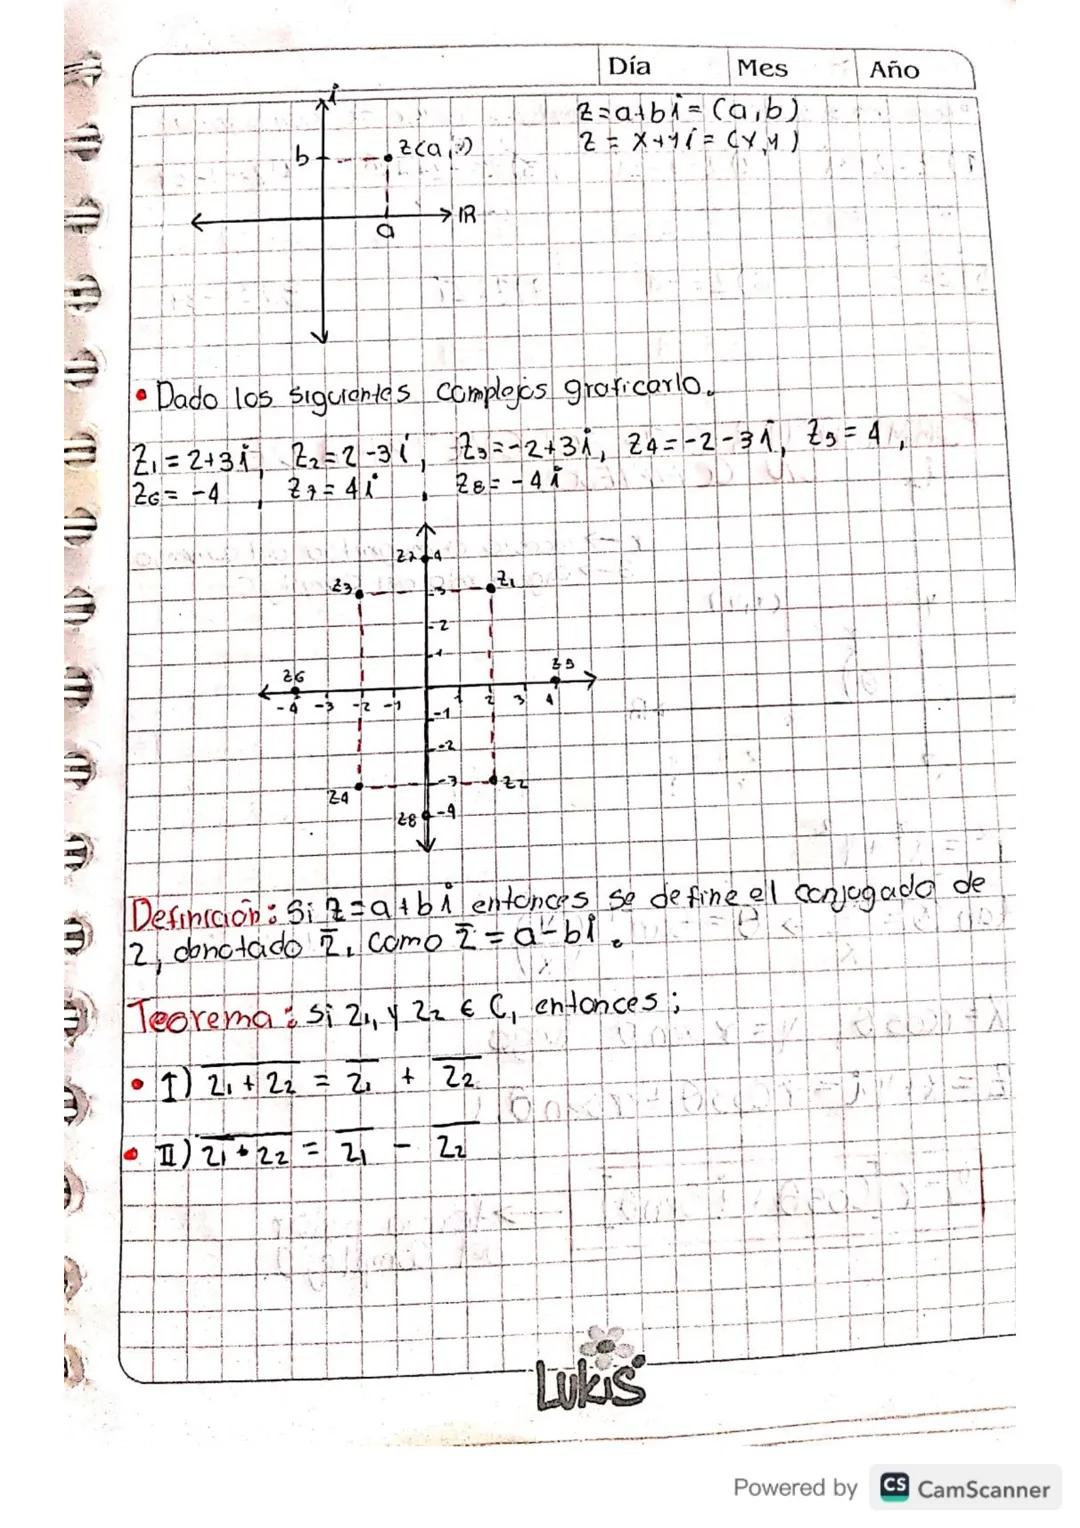 Día Mes Año
i
z=a+bi=(a,b)
b z(a,
z = x+yi=(x,y)
IR
a
• Dado los siguientes complejos graficarlo.
Z₁=2+3i, Z₂=2-3i, Z₃=-2+3i, Z4=-2-3i, Z5=4,
Z6=-4, Z7=4i, Z8=-4i
Z7 4
Z3 3 Z1
2
1
Z6 Z5
-4 -3 -2 -1 1 2 3 4
-1
-2
Z4 -3 Z2
Z8 -4
Definición: Si z=a+bi entonces se define el conjugado de
z, denotado z̅, como z̅=a-bi.
Teorema: Si z₁, y z₂ ∈ C, entonces;
• I) z̅₁̅ ̅+̅ ̅z̅₂̅ = z̅₁ + z̅₂
• II) z̅₁̅ ̅•̅ ̅z̅₂̅ = z̅₁ - z̅₂
Lukis
Powered by CS CamScanner